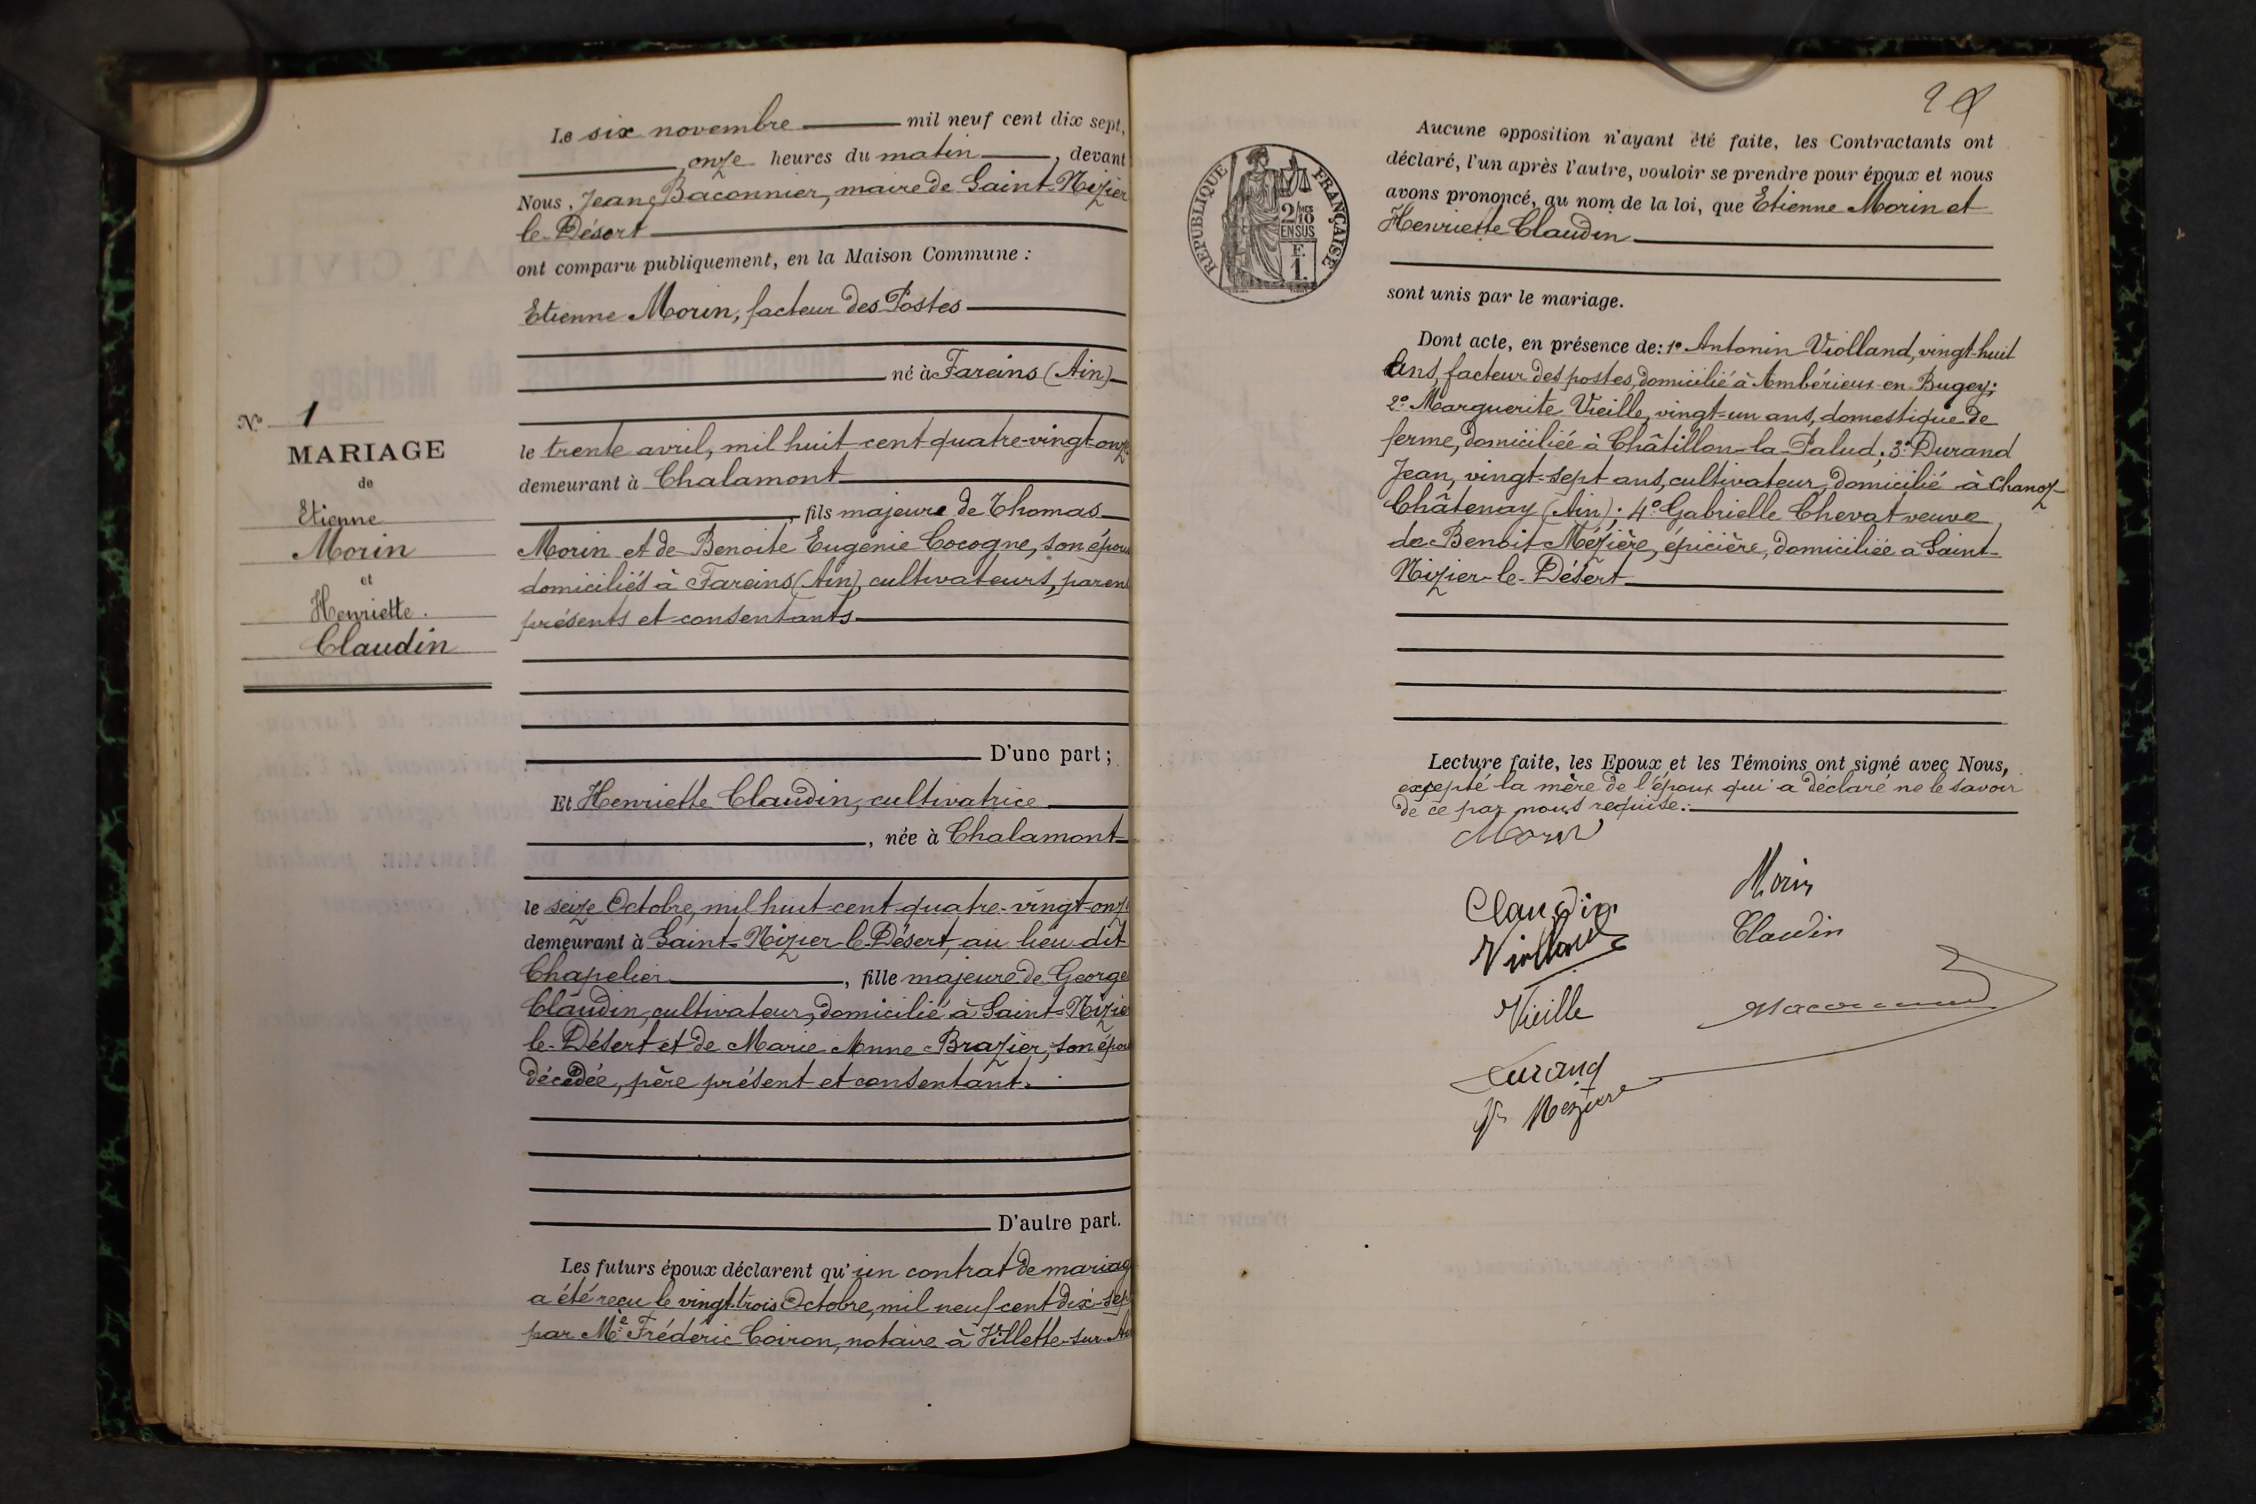 Nº 1
MARIAGE
de
Etienne
Morin
et
Henriette
Claudin
Le six novembre mil neuf cent dix sept,
onze heures du matin, devant
Nous, Jean Baconnier, maire de Saint-Nizier
le-Désert
ont comparu publiquement, en la Maison Commune :
Etienne Morin, facteur des Postes
né à Fareins (Ain)
le trente avril, mil huit-cent quatre-vingt-onze
demeurant à Chalamont
, fils majeure de Thomas
Morin et de Benoite Eugénie Cocogne, son épou
domiciliés à Fareins (Ain), cultivateurs, paren
présents et consentants
D'une part ;
Et Henriette Claudin, cultivatrice
, née à Chalamont
le seize Octobre, mil huit-cent-quatre-vingt-onz
demeurant à Saint-Nizier-le-Désert, au lieu dit
Chapelier, fille majeure de George
Claudin, cultivateur, domicilié à Saint-Nizie
le-Désert et de Marie Anne Brazier, son épou
décédée, père présent et consentant.
D'autre part.
Les futurs époux déclarent qu'un contrat de mariag
a été reçu le vingt-trois Octobre, mil neuf cent dix-sep
par Me Frédéric Coiron, notaire à Villette-sur-Ai
RÉPUBLIQUE FRANÇAISE
2/10
EN SUS
F.
1.
Aucune opposition n'ayant été faite, les Contractants ont
déclaré, l'un après l'autre, vouloir se prendre pour époux et nous
avons prononcé, au nom de la loi, que Etienne Morin et
Henriette Claudin
sont unis par le mariage.
Dont acte, en présence de : 1º Antonin Violland, vingt-huit
ans, facteur des postes, domicilié à Ambérieux-en-Bugey;
2º Marguerite Vieille, vingt-un ans, domestique de
ferme, domiciliée à Châtillon-la-Palud; 3º Durand
Jean, vingt-sept ans, cultivateur, domicilié à Chanoz-
Châtenay (Ain); 4º Gabrielle Chevat veuve
de Benoit Mézière, épicière, domiciliée à Saint-
Nizier-le-Désert
Lecture faite, les Epoux et les Témoins ont signé avec Nous,
excepté la mère de l'époux qui a déclaré ne le savoir
de ce par nous requise.
Morin
Morin
Claudin
Claudin
Violland
Vieille
Durand
Vve Mézière